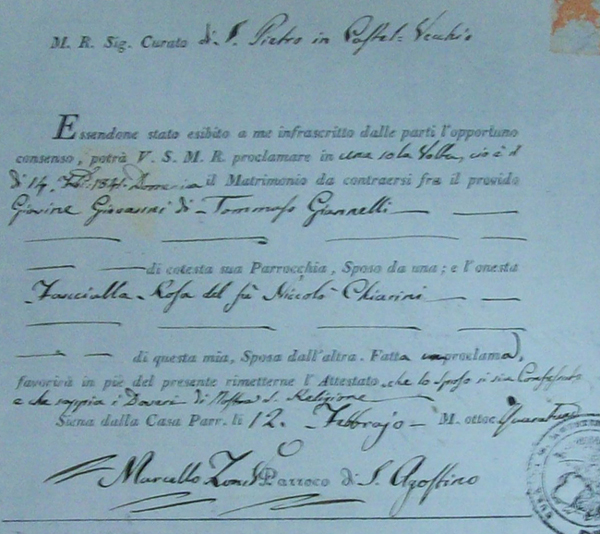 M. R. Sig. Curato di S. Pietro in Castel-Vecchio
Essendone stato esibito a me infrascritto dalle parti l'opportuno
consenso, potrà V. S. M. R. proclamare in una sola Volta, cio è il
dì 14. Feb. 1841. Domenica il Matrimonio da contraersi fra il provido
Giovine Giovanni di Tommaso Giannelli
di cotesta sua Parrocchia, Sposo da una; e l'onesta
Fanciulla Rosa del fù Niccolò Chiarini
di questa mia, Sposa dall'altra. Fatta proclama,
favorirà in piè del presente rimetterne l'Attestato che lo Sposo si sia Confessato
e che sappia i Doveri di Nostra S. Religione
Siena dalla Casa Parr. li 12. Febbrajo M. ottoc. Quarantuno
Marcello Parroco di S. Agostino